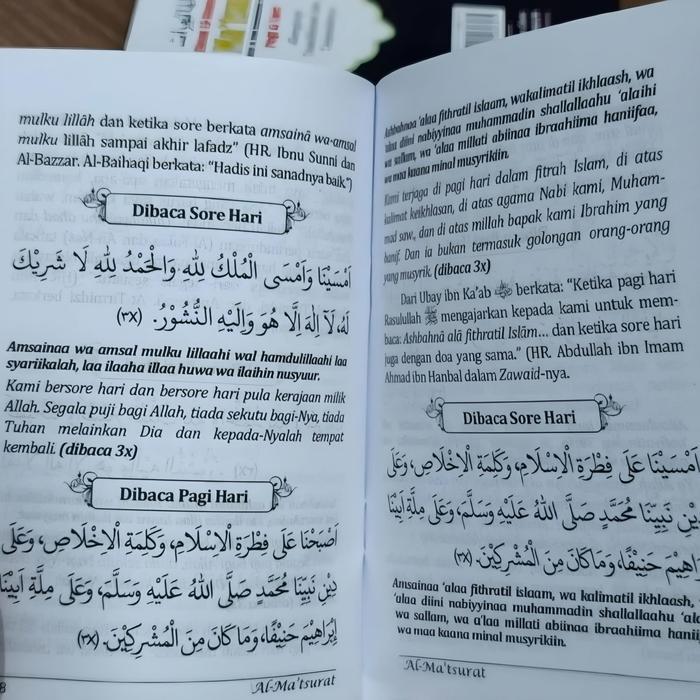 mulku lillâh dan ketika sore berkata amsainâ wa-amsal
mulku lillâh sampai akhir lafadz" (HR. Ibnu Sunni dan
Al-Bazzar. Al-Baihaqi berkata: "Hadis ini sanadnya baik.")
Dibaca Sore Hari
اَمْسَيْنَا وَاَمْسَى الْمُلْكُ لِلّٰهِ وَالْحَمْدُ لِلّٰهِ لَا شَرِيْكَ
لَهُ، لَآ اِلٰهَ اِلَّا هُوَ وَاِلَيْهِ النُّشُوْرُ. (٣x)
Amsainaa wa amsal mulku lillaahi wal hamdulillaahi laa
syariikalah, laa ilaaha illaa huwa wa ilaihin nusyuur.
Kami bersore hari dan bersore hari pula kerajaan milik
Allah. Segala puji bagi Allah, tiada sekutu bagi-Nya, tiada
Tuhan melainkan Dia dan kepada-Nyalah tempat
kembali. (dibaca 3x)
Dibaca Pagi Hari
اَصْبَحْنَا عَلَى فِطْرَةِ الْاِسْلَامِ، وَكَلِمَةِ الْاِخْلَاصِ، وَعَلَى
دِيْنِ نَبِيِّنَا مُحَمَّدٍ صَلَّى اللهُ عَلَيْهِ وَسَلَّمَ، وَعَلَى مِلَّةِ اَبِيْنَا
اِبْرَاهِيْمَ حَنِيْفًا، وَمَا كَانَ مِنَ الْمُشْرِكِيْنَ. (٣x)
8
Al-Ma'tsurat
Ashbahnaa 'alaa fithratil islaam, wakalimatil ikhlaash, wa
'alaa diini nabiyyinaa muhammadin shallallaahu 'alaihi
wa sallam, wa 'alaa millati abiinaa ibraahiima haniifaa,
wa maa kaana minal musyrikiin.
Kami terjaga di pagi hari dalam fitrah Islam, di atas
kalimat keikhlasan, di atas agama Nabi kami, Muham-
mad saw., dan di atas millah bapak kami Ibrahim yang
hanif. Dan ia bukan termasuk golongan orang-orang
yang musyrik. (dibaca 3x)
Dari Ubay ibn Ka'ab berkata: "Ketika pagi hari
Rasulullah ﷺ mengajarkan kepada kami untuk mem-
baca: Ashbahnâ alâ fithratil Islâm... dan ketika sore hari
juga dengan doa yang sama." (HR. Abdullah ibn Imam
Ahmad ibn Hanbal dalam Zawaid-nya.
Dibaca Sore Hari
اَمْسَيْنَا عَلَى فِطْرَةِ الْاِسْلَامِ، وَكَلِمَةِ الْاِخْلَاصِ، وَعَلَى
دِيْنِ نَبِيِّنَا مُحَمَّدٍ صَلَّى اللهُ عَلَيْهِ وَسَلَّمَ، وَعَلَى مِلَّةِ اَبِيْنَا
حَنِيْفًا، وَمَا كَانَ مِنَ الْمُشْرِكِيْنَ. (٣x)
Amsainaa 'alaa fithratil islaam, wa kalimatil ikhlaash,
'alaa diini nabiyyinaa muhammadin shallallaahu
wa sallam, wa a'laa millati abiinaa ibraahiima
wa maa kaana minal musyrikiin.
Al-Ma'tsurat